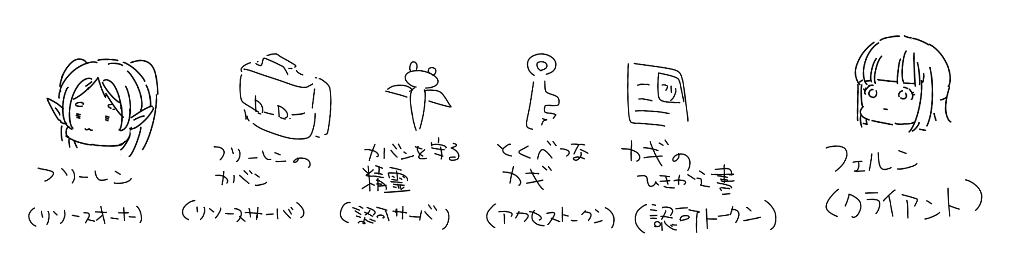 フリーレン
(リソースオーナー)
フリーレンの
カバン
(リソースサーバ)
カバンを守る
精霊
(認可サーバ)
とくべつな
カギ
(アクセストークン)
フリ
カギの
ひきかえ書
(認可トークン)
フェルン
(クライアント)